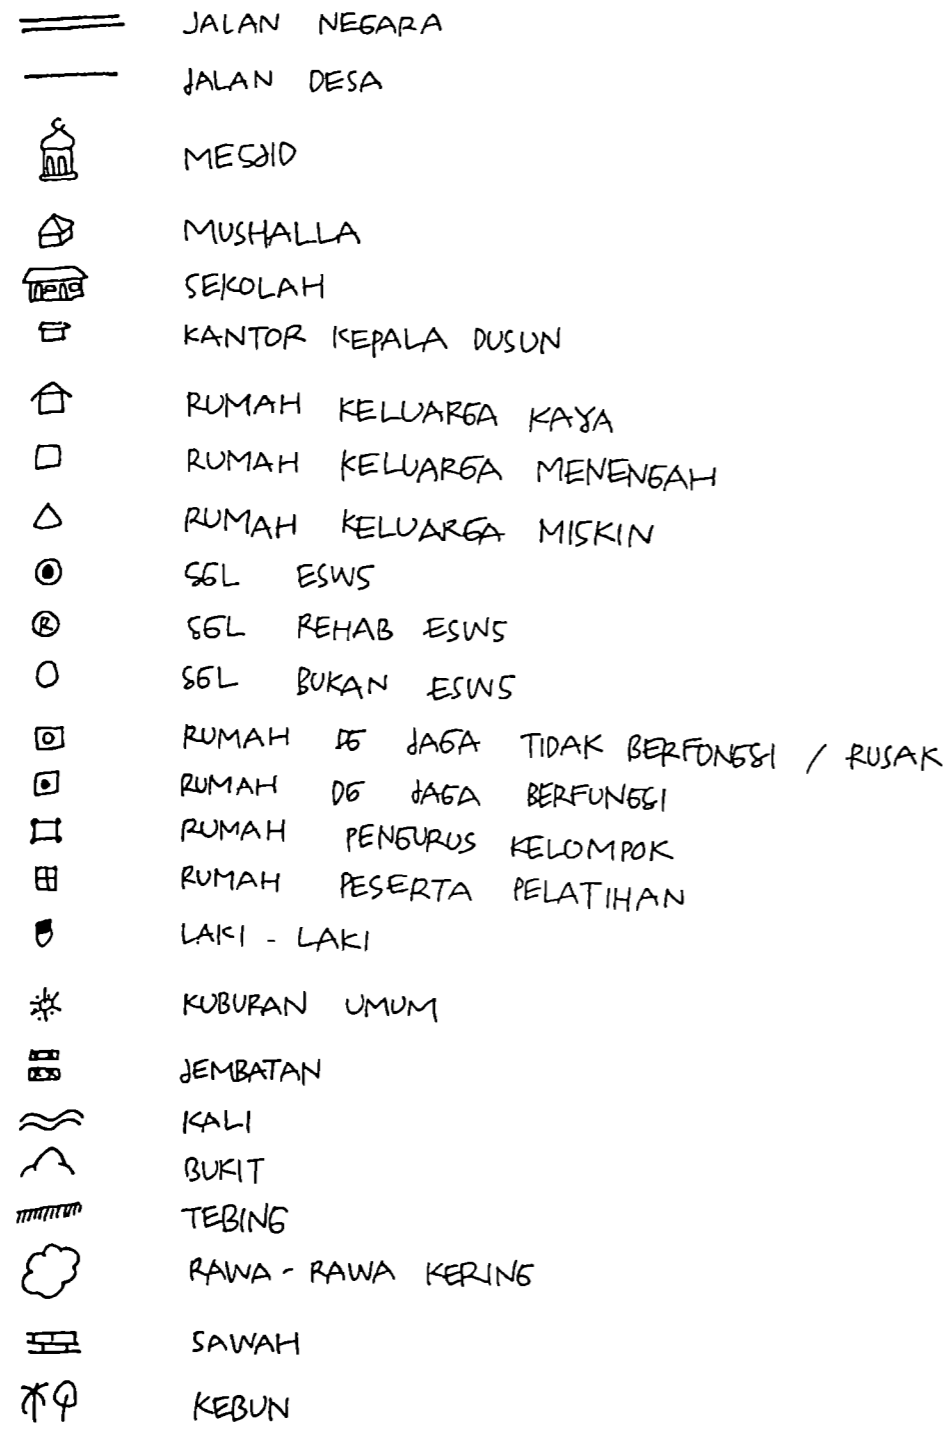 JALAN NEGARA
JALAN DESA
MESJID
MUSHALLA
SEKOLAH
KANTOR KEPALA DUSUN
RUMAH KELUARGA KAYA
RUMAH KELUARGA MENENGAH
RUMAH KELUARGA MISKIN
SGL ESWS
R SGL REHAB ESWS
SGL BUKAN ESWS
RUMAH DG JAGA TIDAK BERFONGSI / RUSAK
RUMAH DG JAGA BERFUNGSI
RUMAH PENGURUS KELOMPOK
RUMAH PESERTA PELATIHAN
LAKI - LAKI
KUBURAN UMUM
JEMBATAN
KALI
BUKIT
TEBING
RAWA - RAWA KERING
SAWAH
KEBUN